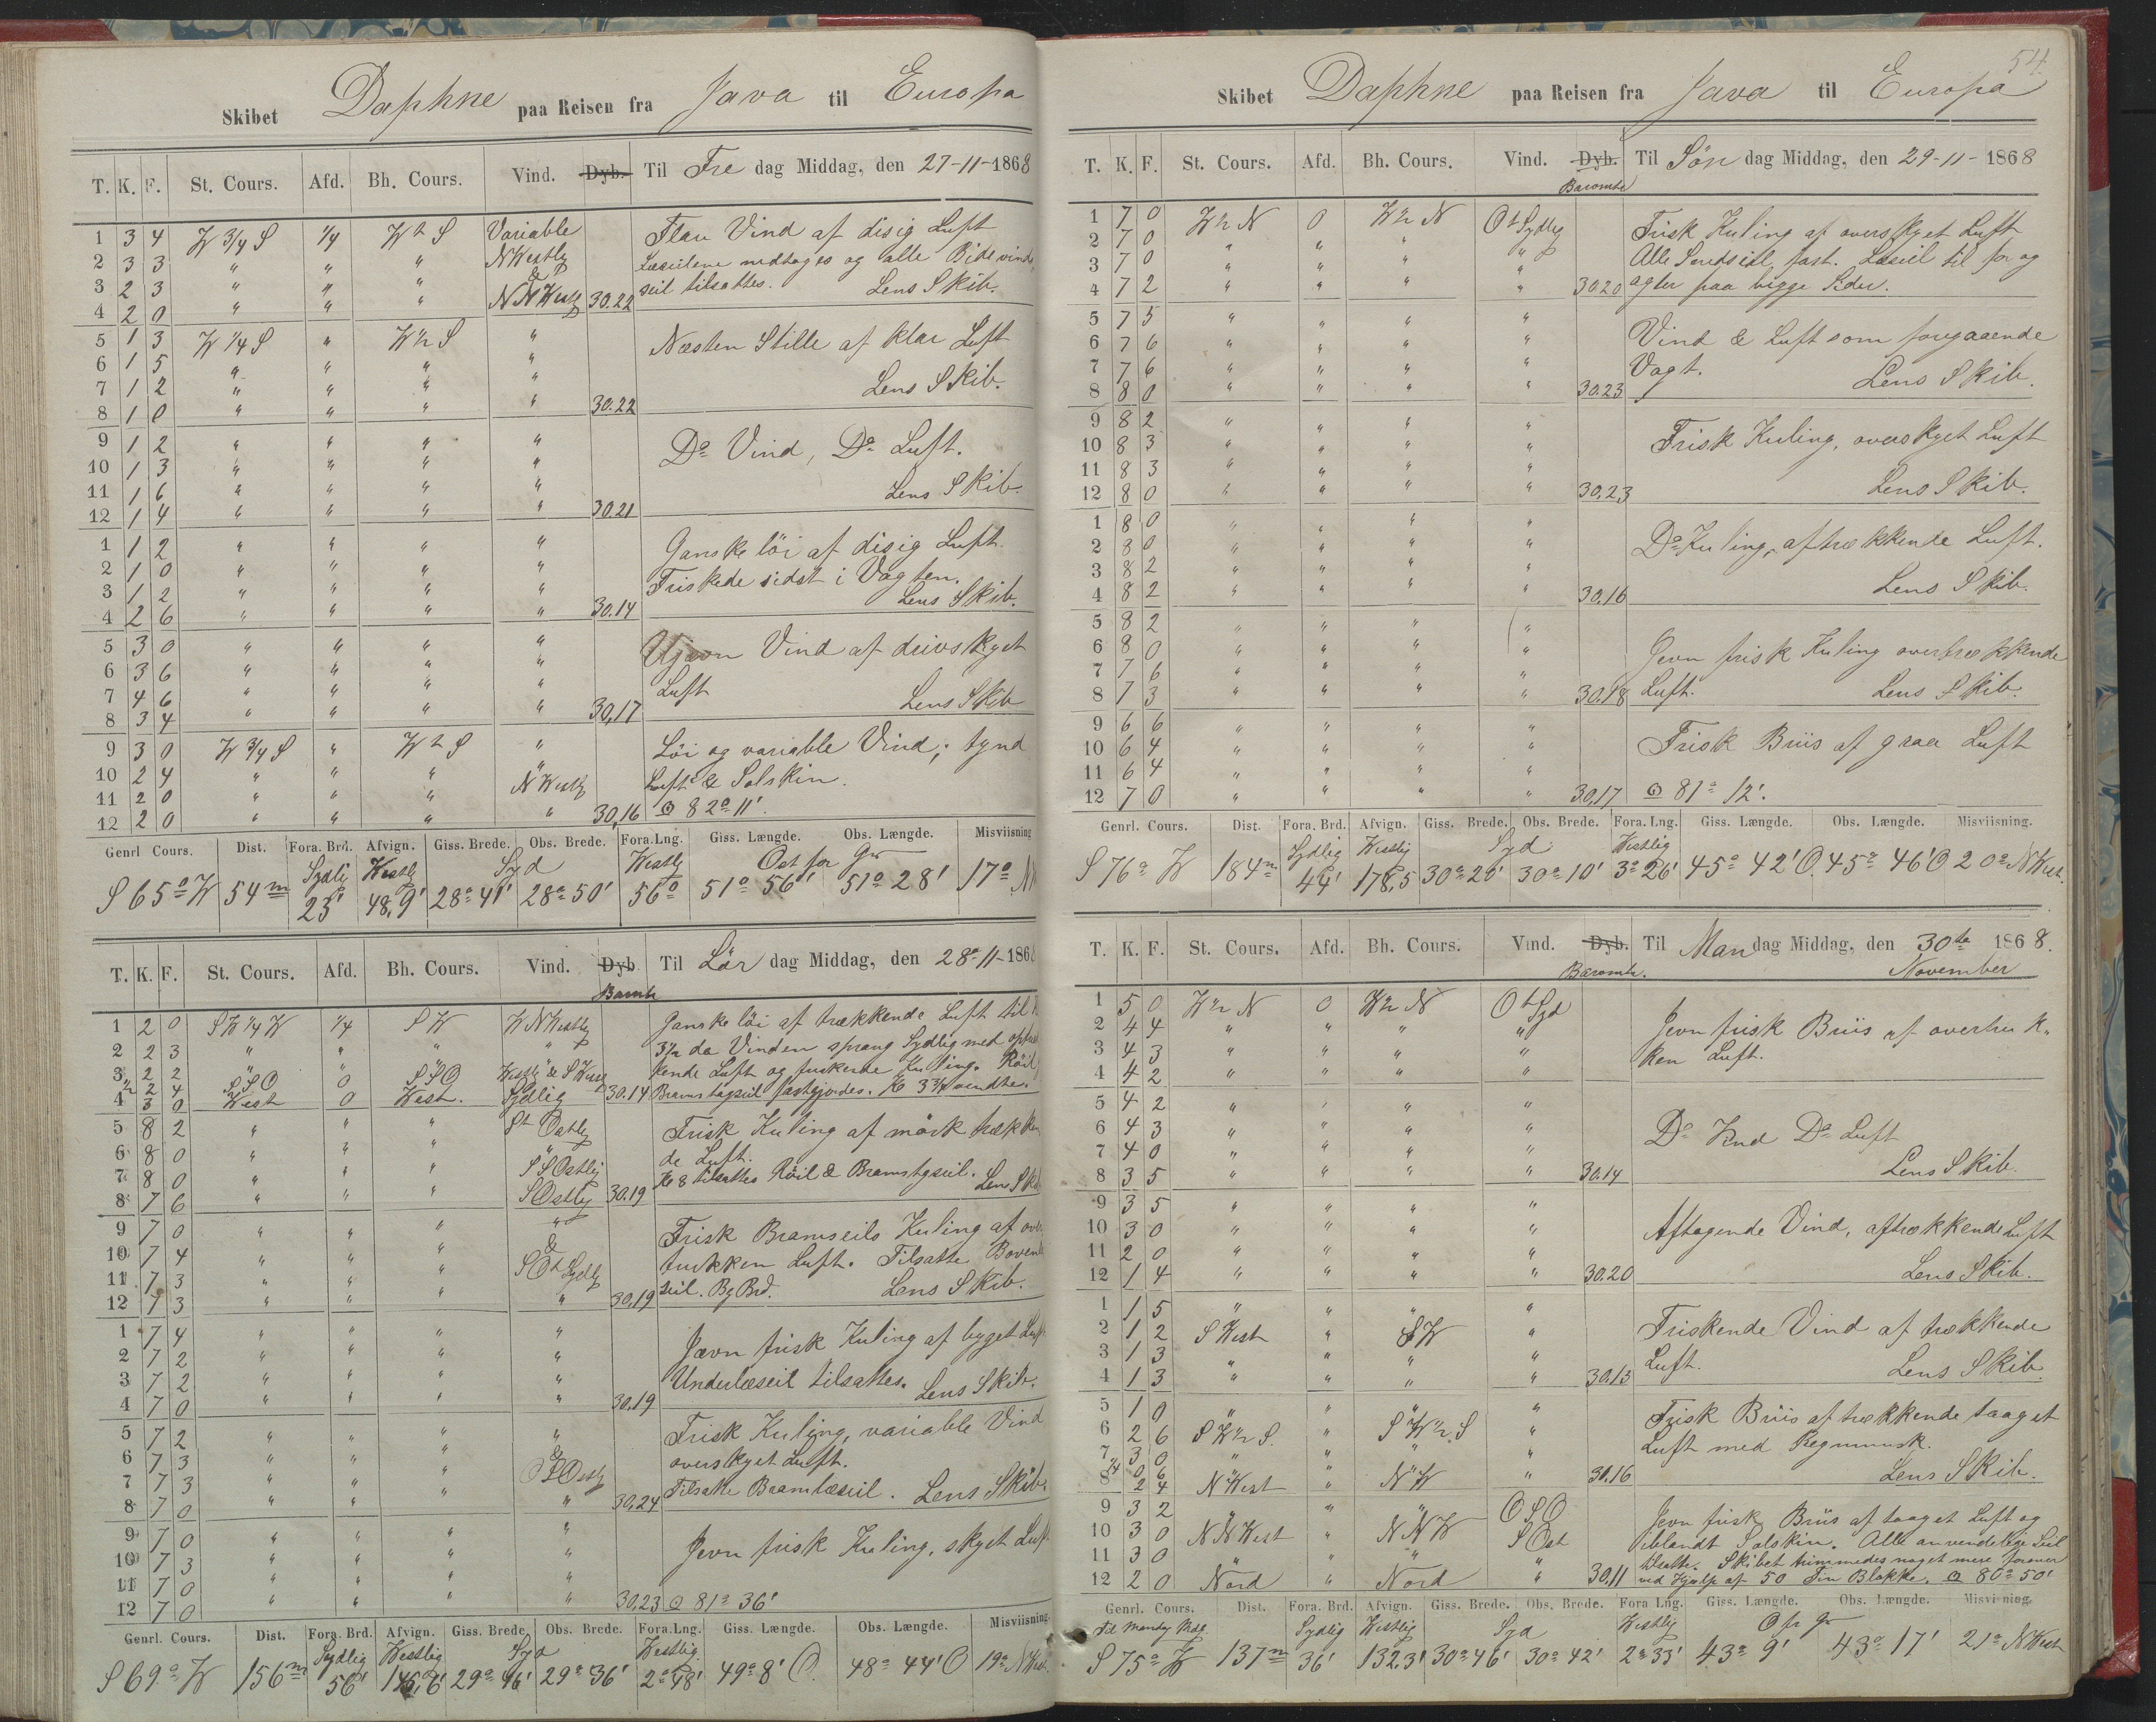 Skibet Daphne paa Reisen fra Java til Europa
T. K. F. St. Cours. Afd. Bh. Cours. Vind. Dyb. Til Fre dag Middag, den 27-11-1868
1 3 4 W 3/4 S 1/4 W t S Variable Flau Vind af disig Luft
2 3 3 " " " N Westlig Læseilene nedtoges og alle Bidevinds
3 2 3 " " " & seil tilsattes. Lens Skib.
4 2 0 " " " NNWestl 30.22
5 1 3 W 1/4 S " W 1/2 S " Næsten Stille af klar Luft
6 1 5 " " " "
7 1 2 " " " " Lens Skib.
8 1 0 " " " " 30.22
9 1 2 " " " " Do Vind, Do Luft.
10 1 3 " " " "
11 1 6 " " " " Lens Skib.
12 1 4 " " " " 30.21
1 1 2 " " " " Ganske löi af disig Luft.
2 1 0 " " " " Friskede sidst i Vagten.
3 1 2 " " " " Lens Skib.
4 2 6 " " " " 30.14
5 3 0 " " " " Ujævn Vind af drivskyet
6 3 6 " " " " Luft
7 4 6 " " " " Lens Skib
8 3 4 " " " " 30,17
9 3 0 W 3/4 S " W t S " Löi og variable Vind; tynd
10 2 4 " " " " Luft & Solskin.
11 2 0 " " " N Westlg
12 2 0 " " " " 30,16 82° 11'.
Genrl Cours. Dist. Fora. Brd. Afvign. Giss. Brede. Obs. Brede. Fora.Lng. Giss. Længde. Obs. Længde. Misviisning
Sydlig Westlig Syd Westlig Ost for Gr
S 65° W 54 m 23' 48,9' 28° 41' 28° 50' 56° 51° 56' 51° 28' 17°
T. K. F. St. Cours. Afd. Bh. Cours. Vind. Dyb Til Lör dag Middag, den 28-11-1868
Baromtr
1 2 0 SW 1/4 W 1/4 SW WNWestlig Ganske löi af trækkende Luft til
2 2 3 " " " " 3 1/2 da Vinden sprang Sydlig med
3 2 2 " " " Westlig & SWestl kende Luft og friskende Kuling. Röil
1/2 2 4 SSO 0 SSO
4 3 0 West 0 West. Sydlig 30.14 Bramstagseil fastgjordes. Kl 3 3/4 vendte.
5 8 2 " " " S t Ostlig Frisk Kuling af mörk trækken
6 8 0 " " " " de Luft.
7 8 0 " " " SSOstlig Kl 8 tilsattes Röil & Bramstgseil. Lens Skib
8 7 6 " " " SOstlig 30.19
9 7 0 " " " " Frisk Bramseils Kuling af over
10 7 4 " " " & trukken Luft. Tilsatte Boven
11 7 3 " " " SO t Sydlig seil. Bg Brd. Lens Skib.
12 7 3 " " " " 30,19
1 7 4 " " " " Jævn frisk Kuling af byget Luft
2 7 2 " " " " Underlæseil tilsattes. Lens Skib.
3 7 2 " " " "
4 7 0 " " " " 30,19
5 7 2 " " " " Frisk Kuling, variable Vind
6 7 3 " " " & overskyet Luft.
7 7 3 " " " Tilsatte Bramlæseil. Lens Skib.
8 7 0 " " " " 30,24
9 7 0 " " " " Jevn frisk Kuling, skyet Luft
10 7 3 " " " "
11 7 0 " " " "
12 7 0 " " " " 30.23 81° 36'
Genrl. Cours. Dist. Fora. Brd. Afvign. Giss. Brede Obs. Brede. Fora.Lng. Giss. Længde. Obs. Længde. Misviisning.
Sydlig Westlig Syd Westlig
S 69° W 156 m 56' 29° 46' 29° 36' 2° 48' 49° 8' O. 48° 44' O 19° N West
54.
Skibet Daphne paa Reisen fra Java til Europa
T. K. F. St. Cours. Afd. Bh. Cours. Vind. Dyb. Til Sön dag Middag, den 29-11-1868
Baromtr
1 7 0 W 1/2 N 0 W 1/2 N O t Sydlig Frisk Kuling af overskyet Luft
2 7 0 " " " " Alle Sma seil fast. Læseil til for og
3 7 0 " " " "
4 7 2 " " " " 30.20 agter paa begge Sider.
5 7 5 " " " " Vind & Luft som foregaaende
6 7 6 " " " "
7 7 6 " " " " Vagt. Lens Skib.
8 8 0 " " " " 30.23
9 8 2 " " " " Frisk Kuling, overskyet Luft
10 8 3 " " " "
11 8 3 " " " " Lens Skib.
12 8 0 " " " " 30,23
1 8 0 " " " " Do Kuling, aftrækkende Luft.
2 8 0 " " " "
3 8 2 " " " " Lens Skib.
4 8 2 " " " " 30,16
5 8 2 " " " " Jevn frisk Kuling overtrækkende
6 8 0 " " " "
7 7 6 " " " "
8 7 3 " " " " 30,18 Luft. Lens Skib.
9 6 6 " " " " Frisk Briis af graa Luft
10 6 4 " " " "
11 6 4 " " " "
12 7 0 " " " " 30,17 81° 12'.
Genrl. Cours. Dist. Fora. Brd. Afvign. Giss. Brede. Obs. Brede. Fora. Lng. Giss. Længde. Obs. Længde. Misviisning.
Sydlig Westlig Syd Westlig
S 76° W 184 m 44' 178,5 30° 20' 30° 10' 3° 26' 45° 42' O. 45° 46' O 20° N West.
T. K. F. St. Cours. Afd. Bh. Cours. Vind. Dyb. Til Man dag Middag, den 30te 1868.
Baromtr. November
1 5 0 W 1/2 N 0 W 1/2 N O t Syd Jevn frisk Briis af overtruk-
2 4 4 " " " "
3 4 3 " " " " ken Luft.
4 4 2 " " " "
5 4 2 " " " "
6 4 3 " " " " Do Vind Do Luft
7 4 0 " " " "
8 3 5 " " " " 30.14 Lens Skib
9 3 5 " " " "
10 3 0 " " " " Aftagende Vind, aftrækkende Luft
11 2 0 " " " "
12 1 4 " " " " 30.20 Lens Skib.
1 1 5 " " " " Friskende Vind af trækkende
2 1 2 S West " SW "
3 1 3 " " " " Luft.
4 1 3 " " " " 30.13 Lens Skib.
5 1 0 " " " " Frisk Briis af trækkende taaget
6 2 6 S W 1/2 S. " S W 1/2 S " Luft med Regnmusk.
7 3 0 " " "
1/4 0 6
8 2 4 N West " N W " 30.16 Lens Skib.
9 3 2 " " " OSO Jevn frisk Briis af taaget Luft og
10 3 0 NNWest " NNW S Ost iblandt Solskin. Alle anvendelige Seil
11 3 0 " " " " tilsatte. Skibet trimmedes noget mere forover
12 2 0 Nord " Nord " 30.11 ved Hjælp af 50 Tin Blokke. 80° 50'
Genrl. Cours. Dist. Fora. Brd. Afvign. Giss. Brede. Obs. Brede. Fora Lng. Giss. Længde. Obs. Længde. Misviisning.
Til Mandg Mdg Sydlig Westlig Syd Westlig O fr Gr
S 75° W 137 m 36' 132,3' 30° 46' 30° 42' 2° 33' 43° 9' 43° 17' 21° N West